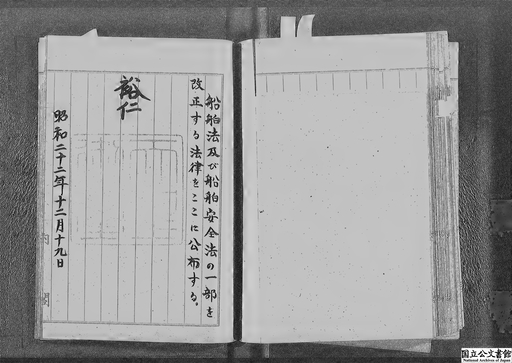 船舶法及び船舶安全法の一部を
改正する法律をここに公布する。
裕仁
昭和二十二年十二月十九日
内閣
国立公文書館
National Archives of Japan